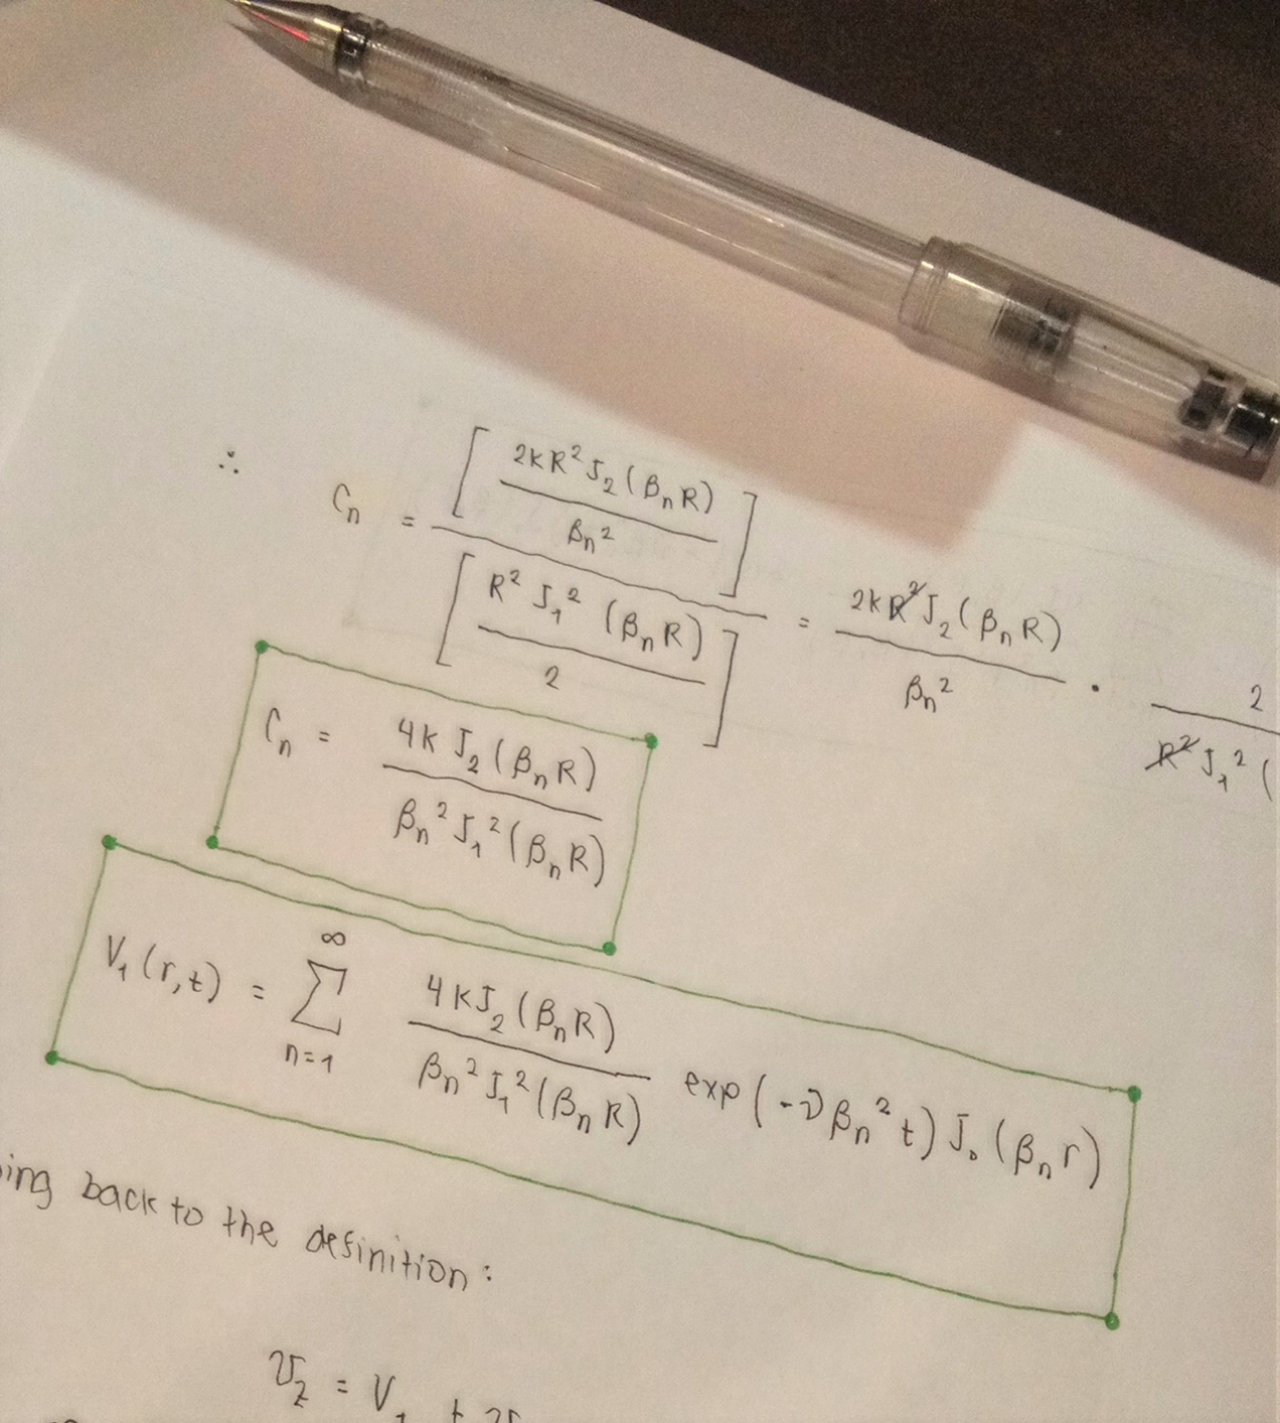 ∴ Cₙ = [2kR²J₂(βₙR) / βₙ²] / [R²J₁²(βₙR) / 2] = 2kR²J₂(βₙR) / βₙ² · 2 / R²J₁²(
Cₙ = 4kJ₂(βₙR) / βₙ²J₁²(βₙR)
V₁(r,t) = ∑ₙ₌₁^∞ 4kJ₂(βₙR) / βₙ²J₁²(βₙR) exp(-νβₙ²t) J₀(βₙr)
ing back to the definition:
v_z = V₁ + v